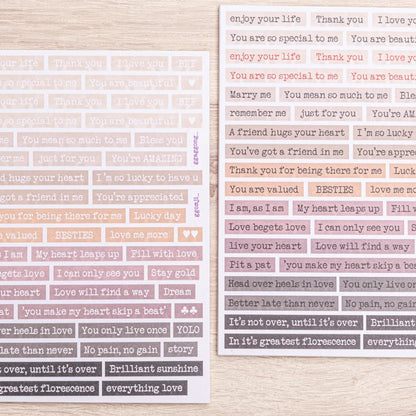 your life Thank you I love you BFF
so special to me You are beautiful
your life Thank you I love you BFF
so special to me You are beautiful
me You mean so much to me Bless you
ember me just for you You're AMAZING
nd hugs your heart I'm so lucky to have u
a friend in me You're appreciated
you for being there for me Lucky day
valued BESTIES love me more
s I am My heart leaps up Fill with love
egets love I can only see you Stay gold
heart Love will find a way Dream
pat 'you make my heart skip a beat'
over heels in love You only live once YOLO
late than never No pain, no gain story
ot over, until it's over Brilliant sunshine
greatest florescence everything love
enjoy your life Thank you I love yo
You are so special to me You are beauti
enjoy your life Thank you I love yo
You are so special to me You are beauti
Marry me You mean so much to me Ble
remember me just for you You're AM
A friend hugs your heart I'm so lucky
You've got a friend in me You're appr
Thank you for being there for me Luck
You are valued BESTIES love me mor
I am, as I am My heart leaps up Fill
Love begets love I can only see you S
live your heart Love will find a way
Fit a pat 'you make my heart skip a bea
Head over heels in love You only live once
Better late than never No pain, no gain
It's not over, until it's over Brilliant
In it's greatest florescence everyth